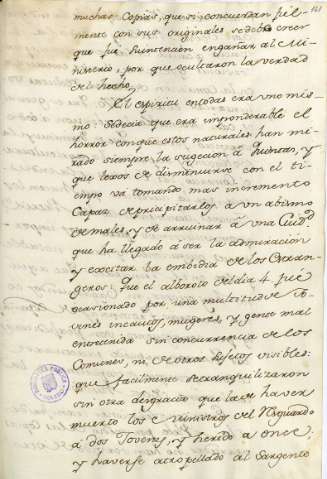 muchas Copias, que si concuerdan fiel
mente con sus originales se debe creer
que fue su intencion engañar al Mi
nisterio, por que ocultaron la verdad
del hecho.
El espiritu en todas era uno mis
mo: se decia que era imponderable el
horror con que estos naturales han mi
rado siempre la sugecion a Quintas, y
que lexos de disminuirse con el ti
empo va tomando mas incremento
capaz de precipitarlos a un abismo
de males, y de arruinar à una Ciudd
que ha llegado à ser la admiracion
y excitar la embidia de los Extran
geros: Que el alboroto del dia 4 fue
ocasionado por una multitud de Jo
venes incautos, mugeres, y gente mal
entendida sin concurrencia de los
Comunes, ni de otros sujetos visibles:
que facilmente se tranquilizaron
sin otra desgracia que la de haver
muerto los Ministros del Resguardo
a dos Jovenes, y herido a once,
y haverse atropellado al Sargento